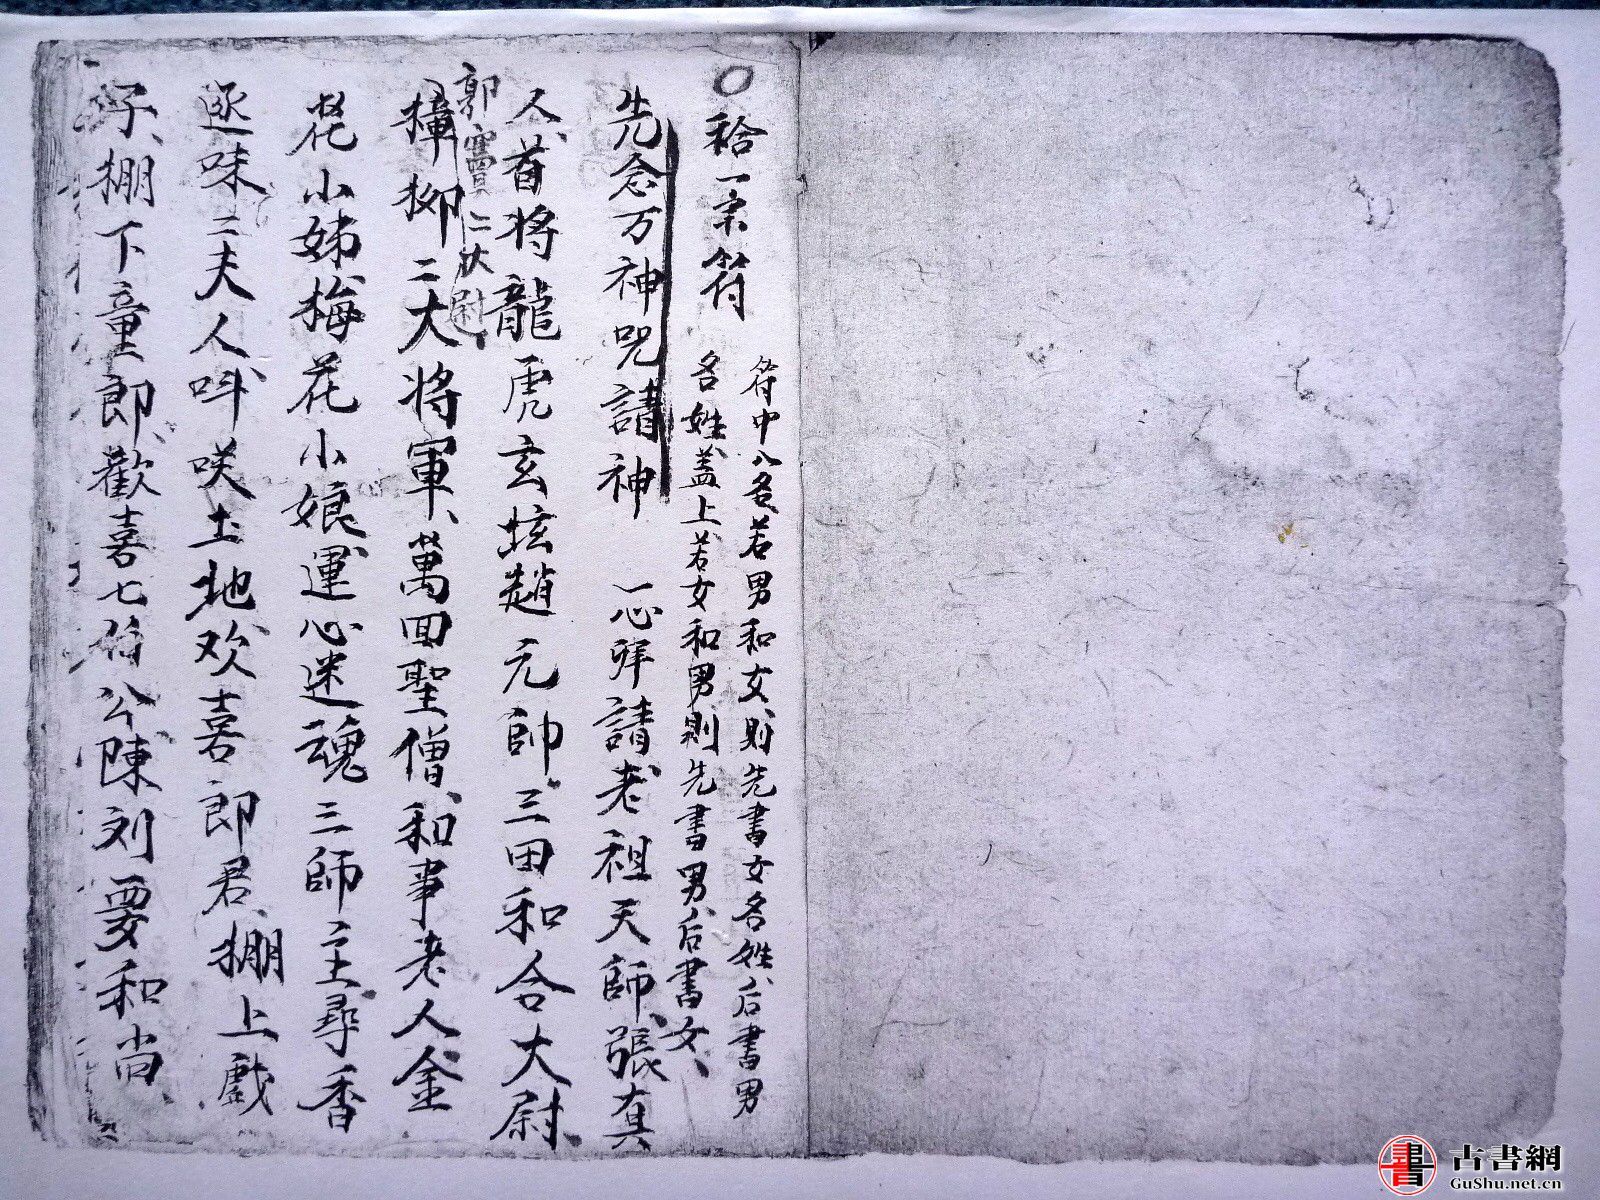 ○袷一宗符
符中八名若男和女則先書女名姓后書男
名姓蓋上若女和男則先書男后書女
先念万神咒請神 一心拜請老祖天師張真
人 首將龍虎玄坛趙元帥三田和合大尉
郭竇二伏尉
樟柳二大將軍萬回聖僧和事老人金
花小姊梅花小娘運心迷魂三師主尋香
逐味二夫人呌咲土地欢喜郎君棚上戯
子棚下童郎歡喜七伯公陳刘要和尚
書 古書網
GuShu.net.cn